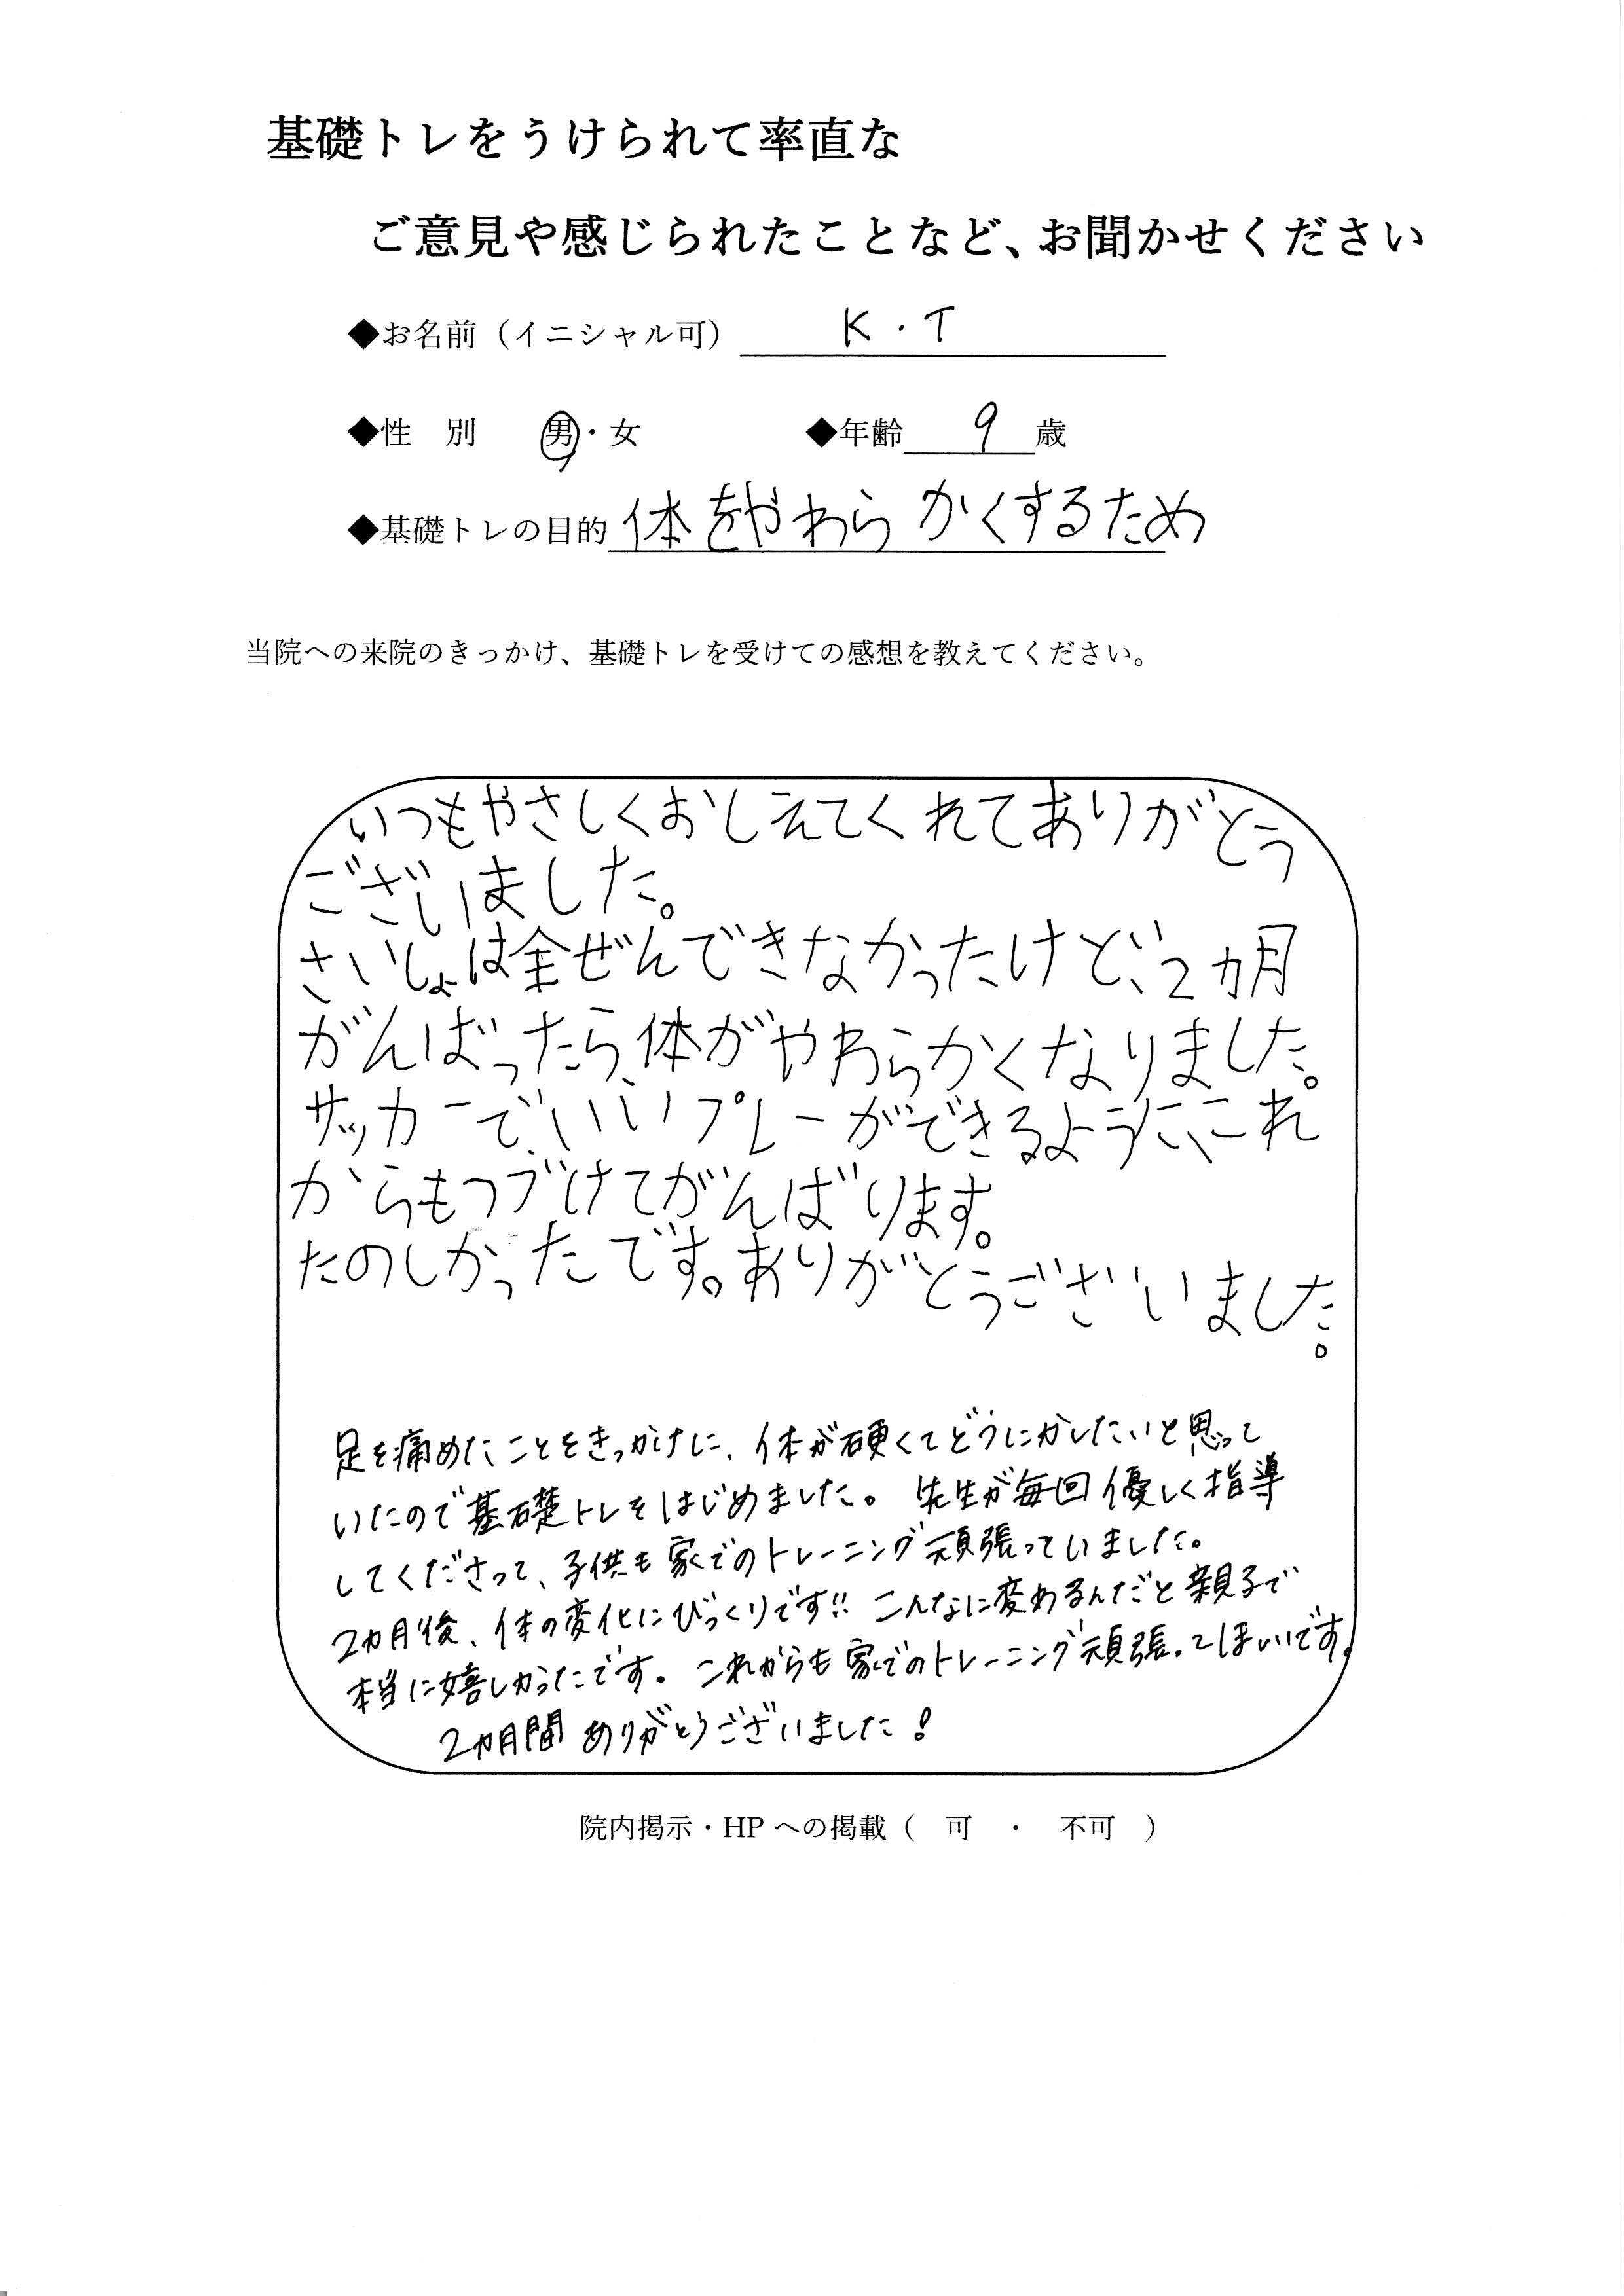 基礎トレをうけられて率直な
ご意見や感じられたことなど、お聞かせください
◆お名前（イニシャル可） K・T
◆性 別 男・女 ◆年齢 9 歳
◆基礎トレの目的 体をやわらかくするため
当院への来院のきっかけ、基礎トレを受けての感想を教えてください。
いつもやさしくおしえてくれてありがとう
ございました。
さいしょは全ぜんできなかったけど、2カ月
がんばったら、体がやわらかくなりました。
サッカーで、いいプレーができるように、これ
からもつづけてがんばります。
たのしかったです。ありがとうございました。
足を痛めたことをきっかけに、体が硬くてどうにかしたいと思って
いたので基礎トレをはじめました。先生が毎回優しく指導
してくださって、子供も家でのトレーニング頑張っていました。
2カ月後、体の変化にびっくりです!! こんなに変わるんだと親子で
本当に嬉しかったです。これからも家でのトレーニング頑張ってほしいです。
2カ月間ありがとうございました！
院内掲示・HPへの掲載（ 可 ・ 不可 ）